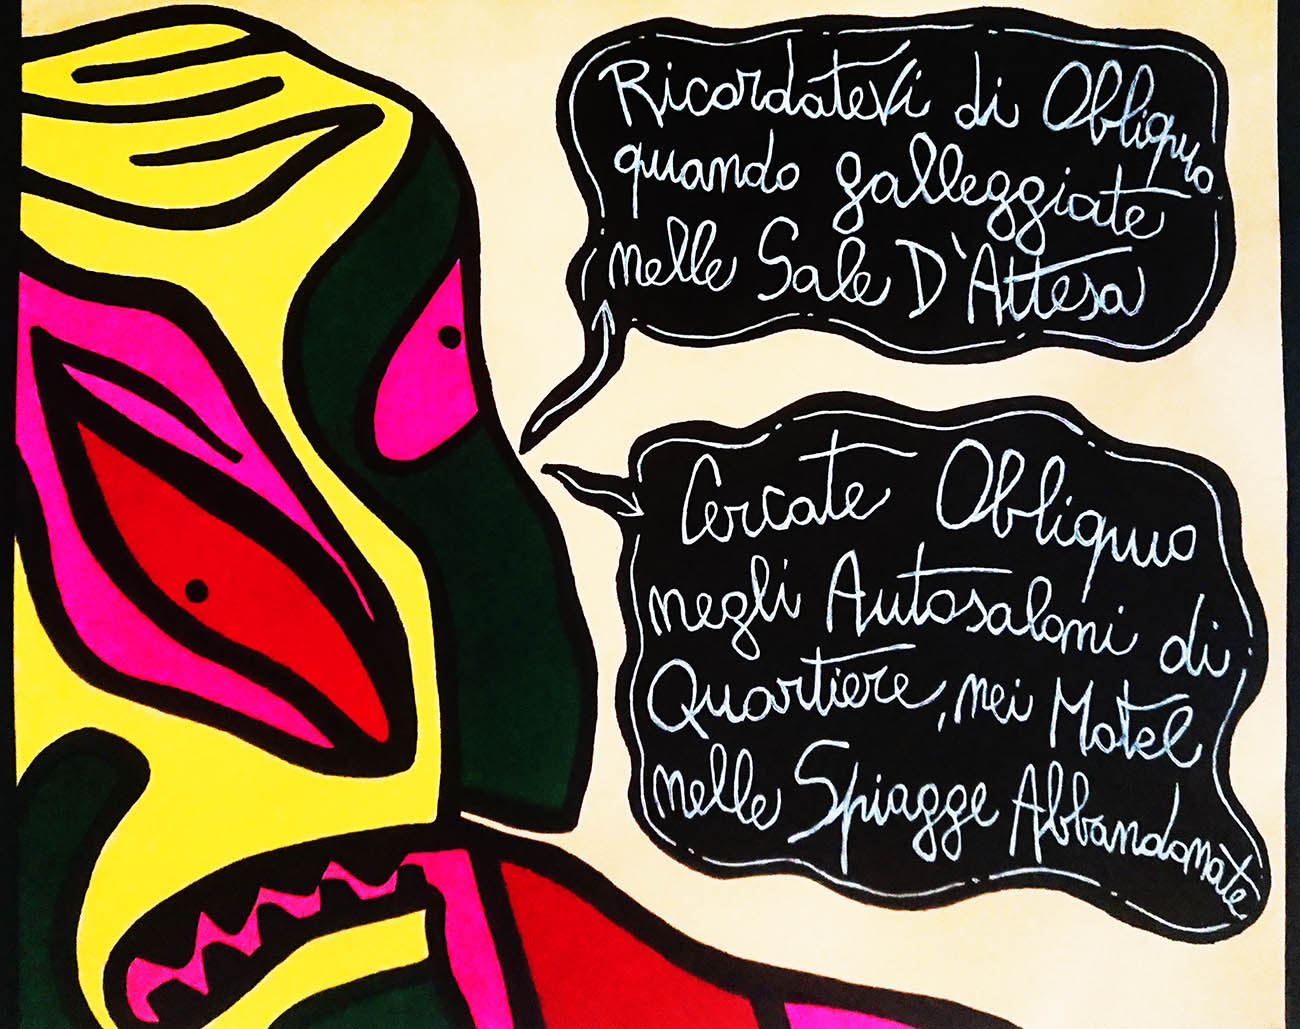 Ricordatevi di Obliquo
quando galleggiate
nelle Sale D'Attesa
Cercate Obliquo
negli Autosaloni di
Quartiere, nei Motel
nelle Spiagge Abbandonate